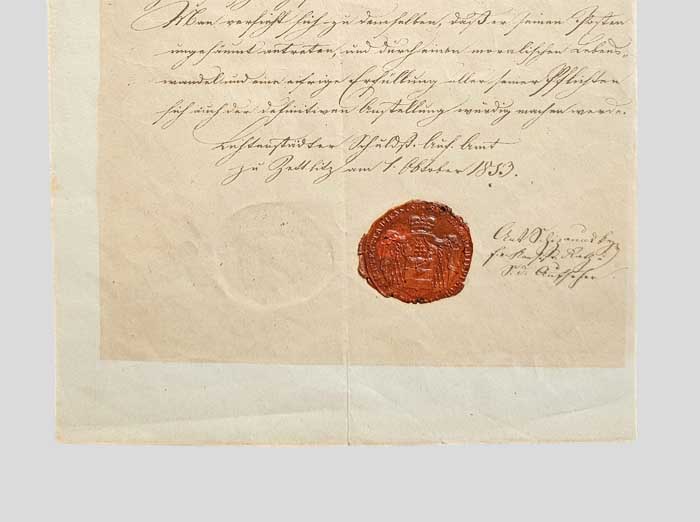 Man versieht sich zu demselben, daß er seinen Posten
ungesäumt antreten, und durch einen moralischen Lebens-
wandel und eine eifrige Erfüllung aller seiner Pflichten
sich auch der definitiven Anstellung würdig machen werde.
Schuldst. Auf. Amt
zu Zettlitz am 1. Oktober 1853.
Ant.
S. d. Aufseher